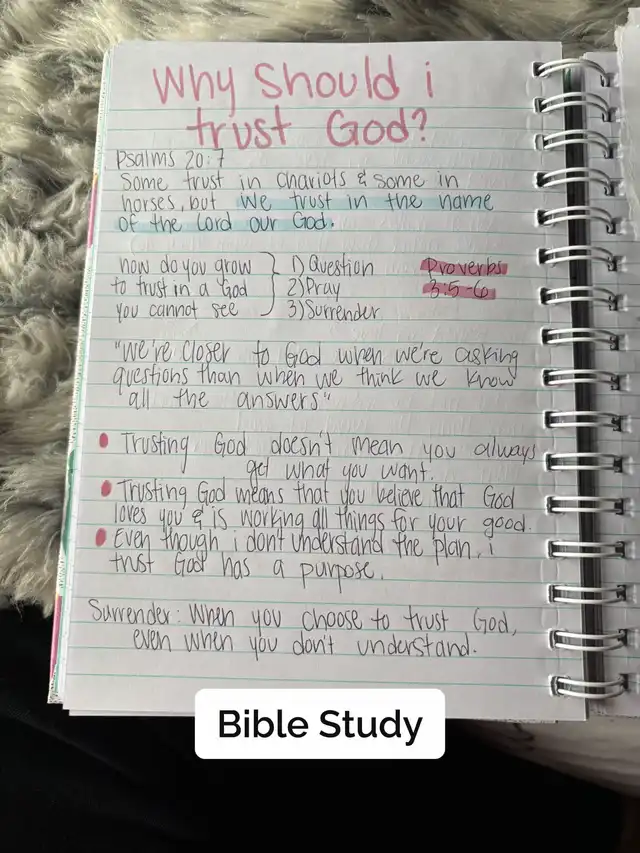 Why Should i
trust God?
Psalms 20:7
Some trust in chariots & some in
horses, but we trust in the name
of the Lord our God.
how do you grow
to trust in a God
you cannot see
1) Question
2) Pray
3) Surrender
Proverbs
3:5-6
"We're closer to God when we're asking
questions than when we think we know
all the answers"
• Trusting God doesn't mean you always
get what you want.
• Trusting God means that you believe that God
loves you & is working all things for your good.
• Even though i don't understand the plan, i
trust God has a purpose.
Surrender: When you choose to trust God,
even when you don't understand.
Bible Study